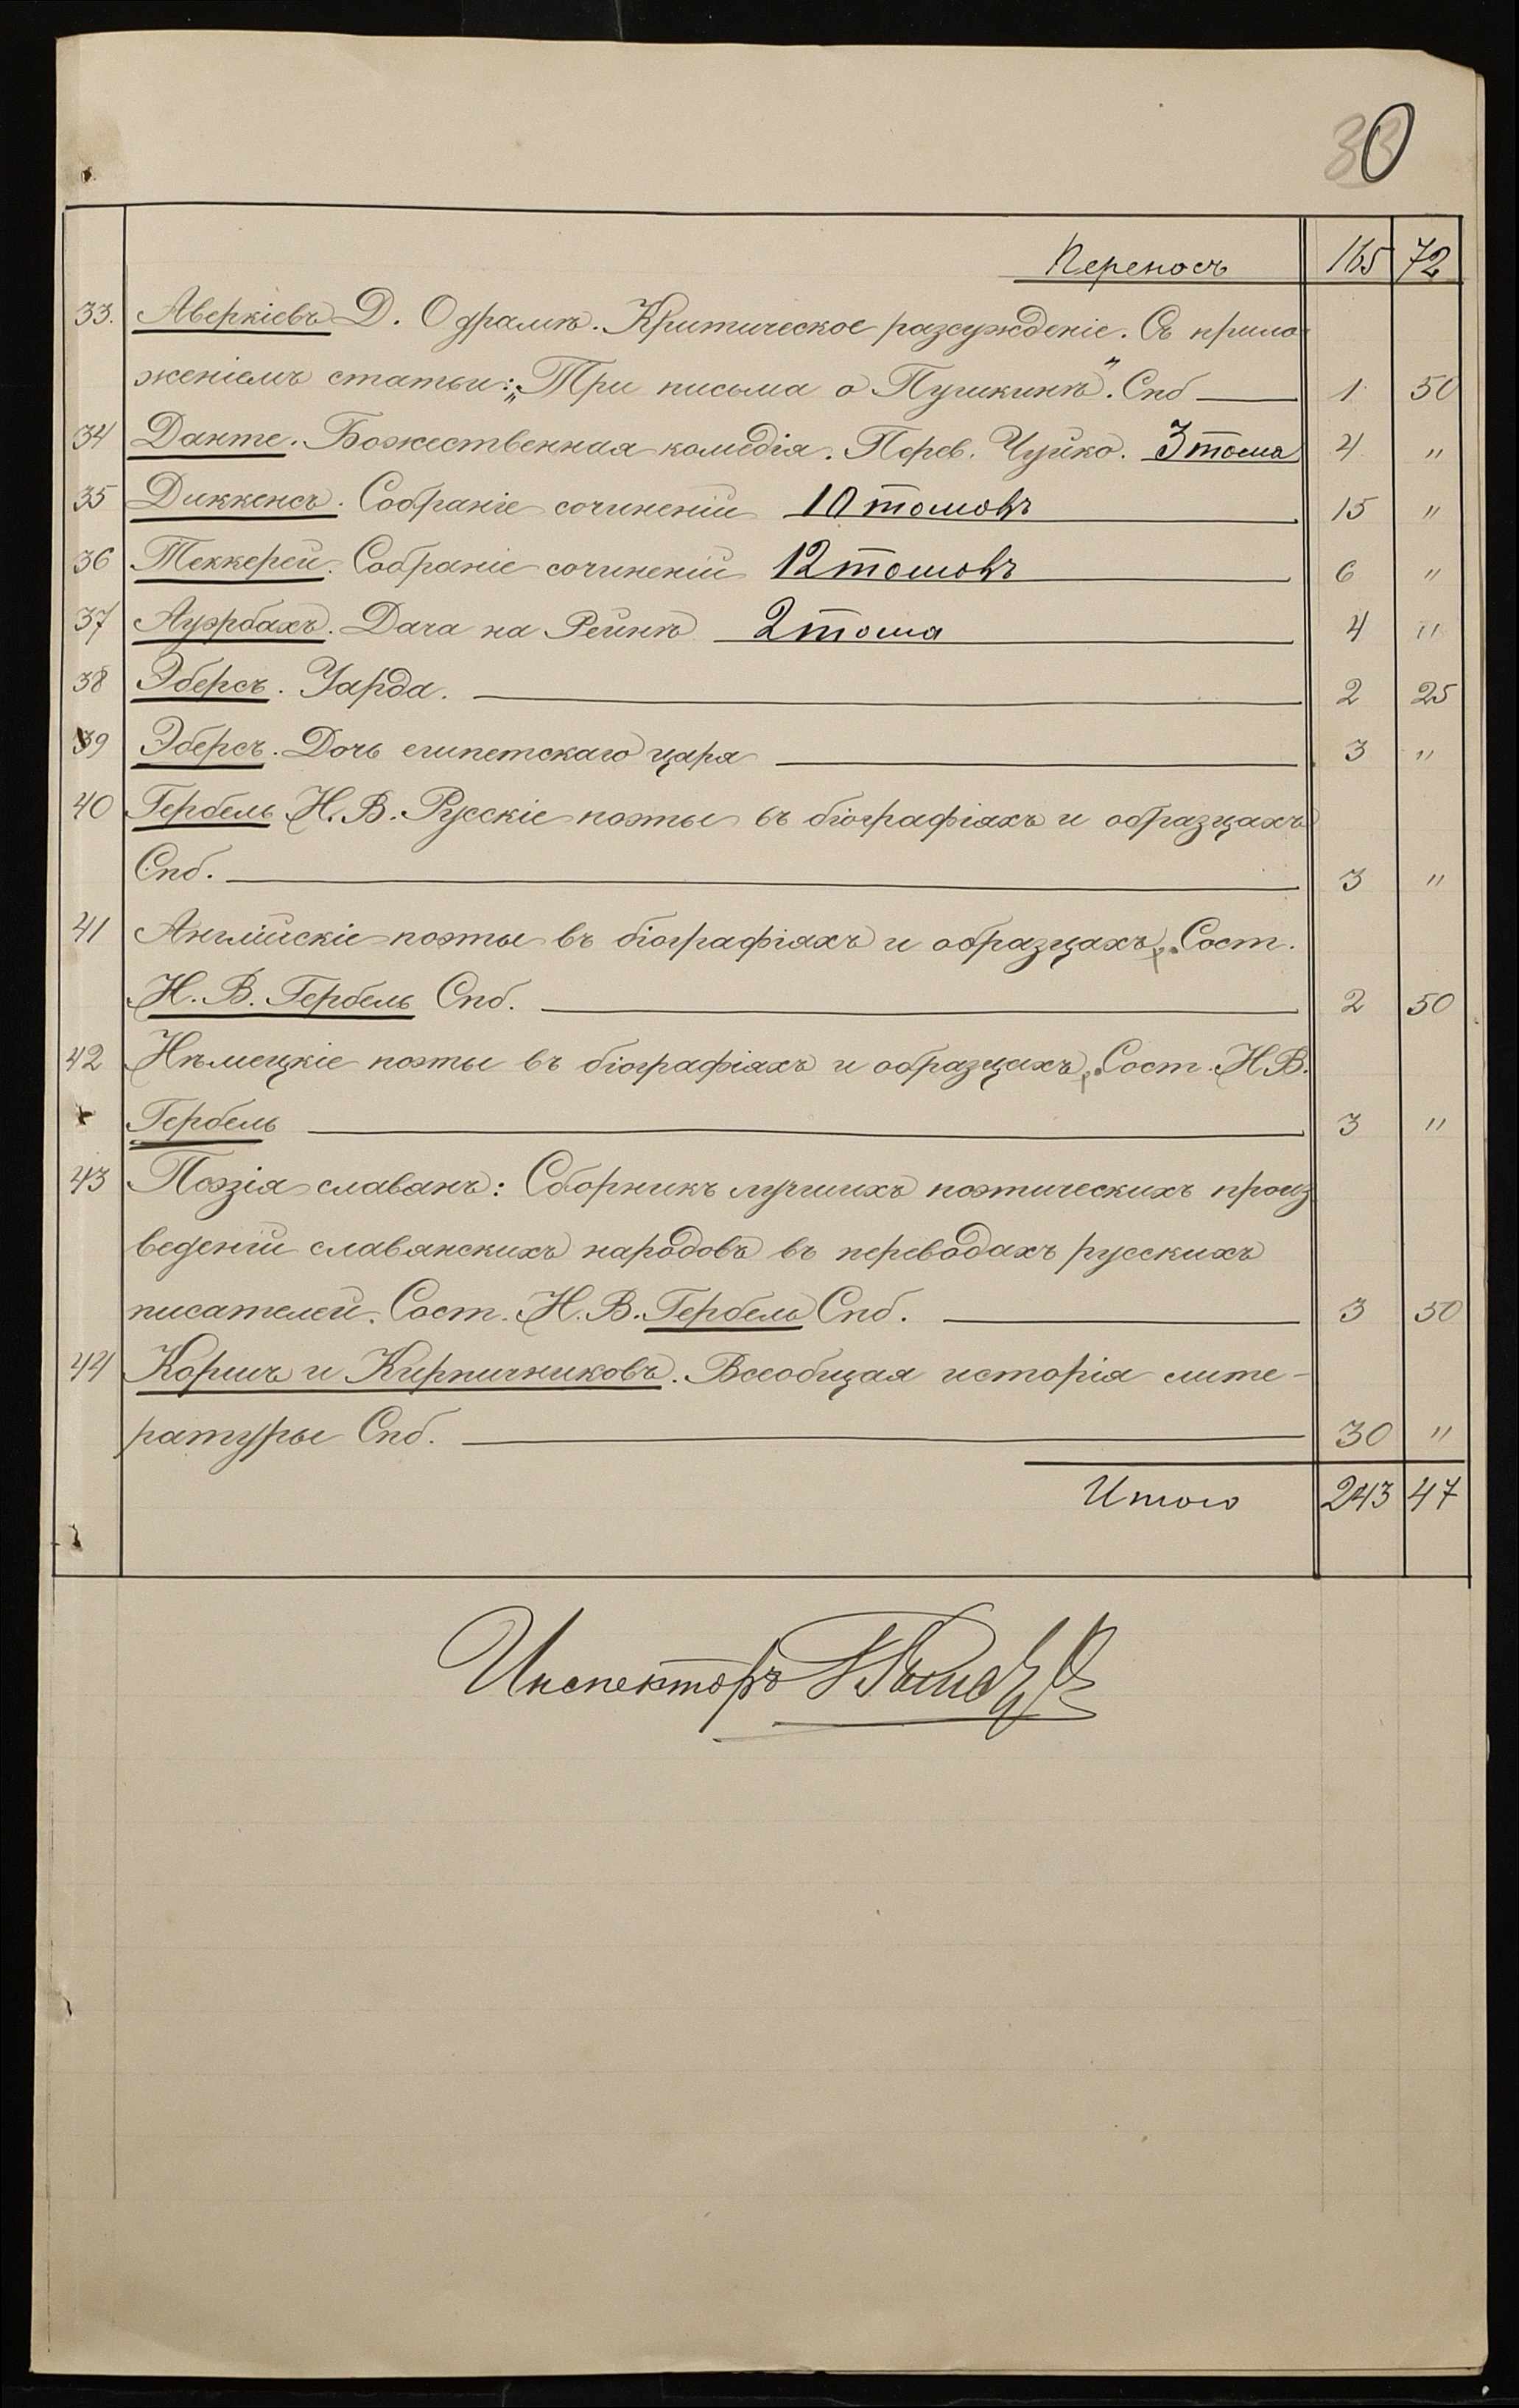 30
Переносъ 165 72
33. Аверкіевъ Д. О драмѣ. Критическое разсужденіе. Съ прило-
женіемъ статьи: „Три письма о Пушкинѣ". Спб 1 50
34 Данте. Божественная комедія. Перев. Чуйко. 3 тома 4 "
35 Диккенсъ. Собраніе сочиненій 10 томовъ 15 "
36 Теккерей. Собраніе сочиненій 12 томовъ 6 "
37 Ауэрбахъ. Дача на Рейнѣ 2 тома 4 "
38 Эберсъ. Уарда. 2 25
39 Эберсъ. Дочь египетскаго царя 3 "
40 Гербель Н. В. Русскіе поэты въ біографіяхъ и образцахъ
Спб. 3 "
41 Англійскіе поэты въ біографіяхъ и образцахъ. Сост.
Н. В. Гербель Спб. 2 50
42 Нѣмецкіе поэты въ біографіяхъ и образцахъ. Сост. Н. В.
Гербель 3 "
43 Поэзія славянъ: Сборникъ лучшихъ поэтическихъ произ
веденій славянскихъ народовъ въ переводахъ русскихъ
писателей. Сост. Н. В. Гербель Спб. 3 50
44 Коршъ и Кирпичниковъ. Всеобщая исторія лите-
ратуры Спб. 30 "
Итого 243 47
Инспекторъ